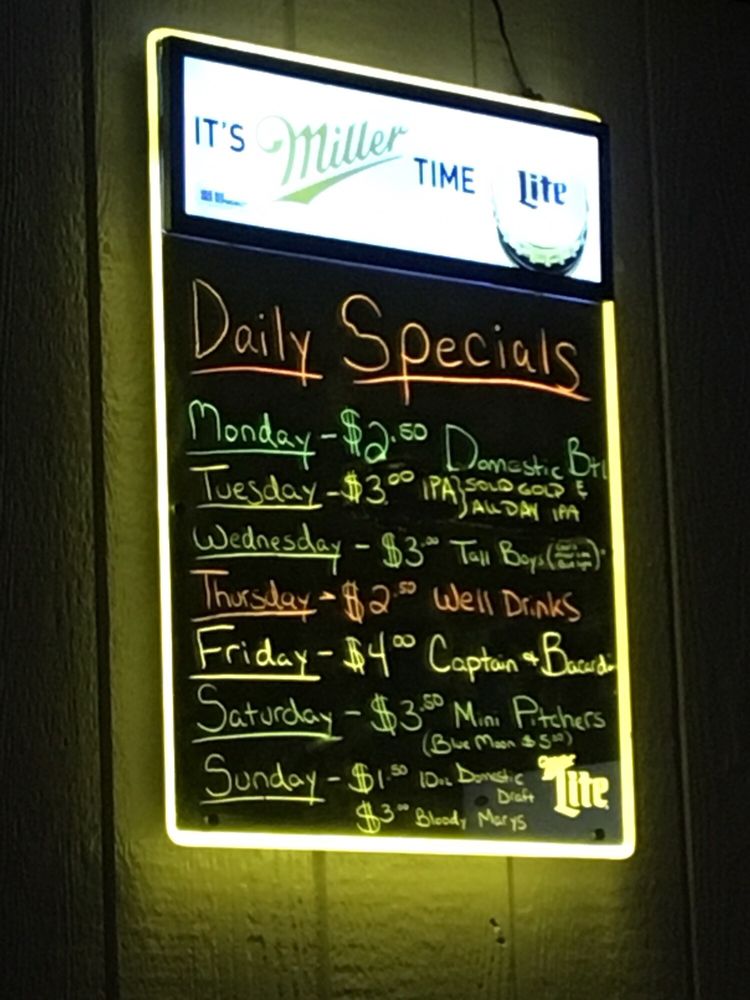 IT'S Miller TIME Lite
Daily Specials
Monday - $2.50 Domestic Btl
Tuesday - $3.00 IPA} SOLID GOLD &
ALL DAY IPA
Wednesday - $3.00 Tall Boys
Thursday - $2.50 Well Drinks
Friday - $4.00 Captain & Bacardi
Saturday - $3.50 Mini Pitchers
(Blue Moon $5.00)
Sunday - $1.50 10oz Domestic
Draft
$3.00 Bloody Marys
Miller Lite